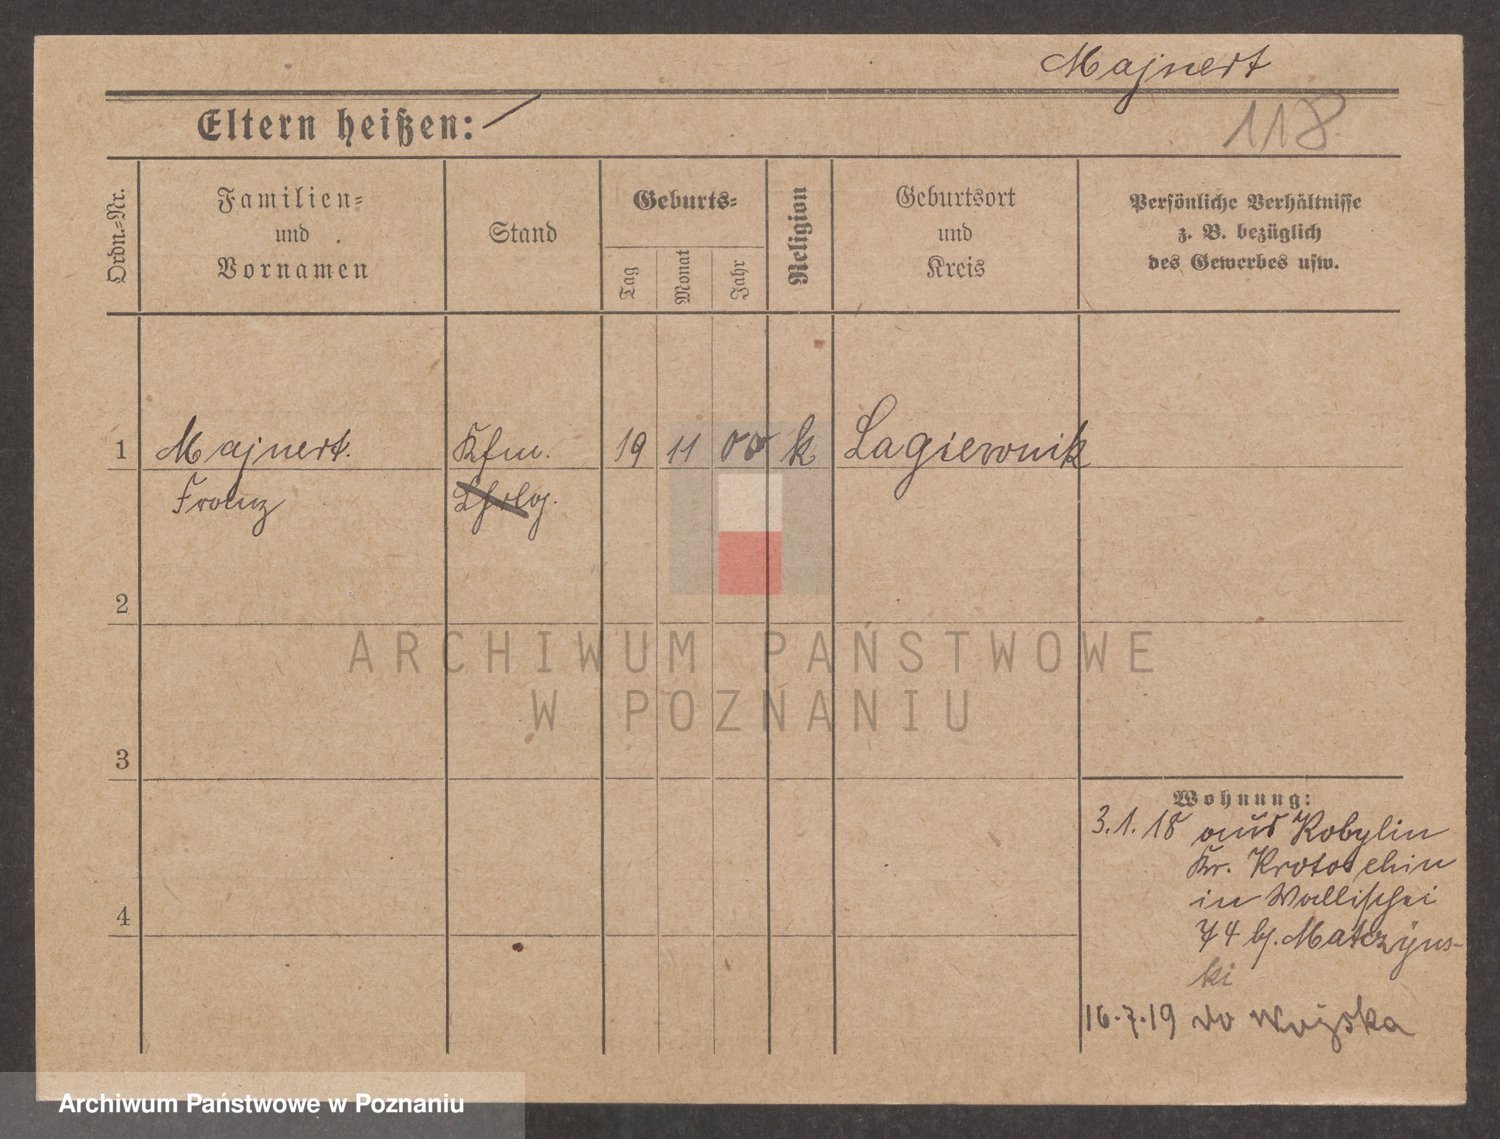 Majnert
118
Eltern heißen:
Ordn.=Nr.
Familien=
und
Vornamen
Stand
Geburts=
Tag
Monat
Jahr
Religion
Geburtsort
und
Kreis
Persönliche Verhältnisse
z. B. bezüglich
des Gewerbes usw.
1 Majnert. Kfm. 19 11 00 k Lagiewnik
Franz
2
3
4
Wohnung:
3.1.18 aus Kobylin
Kr. Krotoschin
in Wallischei
74 b/. Matczyns-
ki
16.7.19 do Wojska
ARCHIWUM PAŃSTWOWE
W POZNANIU
Archiwum Państwowe w Poznaniu